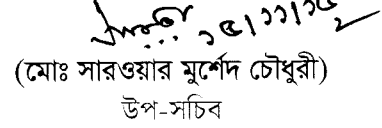 ১৫/১১/১৫
(মোঃ সারওয়ার মুর্শেদ চৌধুরী)
উপ-সচিব